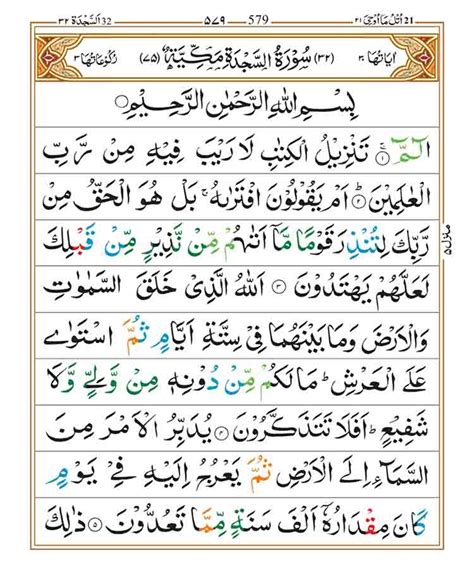 اُتْلُ مَآ اُوْحِيَ ٢١ 21
579 ٥٧٩
32 اَلسَّجْدَة ٣٢
اٰيَاتُهَا ٣٠
(٣٢) سُوْرَةُ السَّجْدَةِ مَكِّيَّةٌ (٧٥)
رُكُوْعَاتُهَا ٣
بِسْمِ اللهِ الرَّحْمٰنِ الرَّحِيْمِ
الٓمّٓ ۚ ١ تَنْزِيْلُ الْكِتٰبِ لَا رَيْبَ فِيْهِ مِنْ رَّبِّ
الْعٰلَمِيْنَ ؕ ٢ اَمْ يَقُوْلُوْنَ افْتَرٰىهُ ۚ بَلْ هُوَ الْحَقُّ مِنْ
رَّبِّكَ لِتُنْذِرَ قَوْمًا مَّاۤ اَتٰىهُمْ مِّنْ نَّذِيْرٍ مِّنْ قَبْلِكَ
لَعَلَّهُمْ يَهْتَدُوْنَ ٣ اَللهُ الَّذِيْ خَلَقَ السَّمٰوٰتِ
وَالْاَرْضَ وَمَا بَيْنَهُمَا فِيْ سِتَّةِ اَيَّامٍ ثُمَّ اسْتَوٰى
عَلَى الْعَرْشِ ؕ مَا لَكُمْ مِّنْ دُوْنِهٖ مِنْ وَّلِيٍّ وَّلَا
شَفِيْعٍ ؕ اَفَلَا تَتَذَكَّرُوْنَ ٤ يُدَبِّرُ الْاَمْرَ مِنَ
السَّمَآءِ اِلَى الْاَرْضِ ثُمَّ يَعْرُجُ اِلَيْهِ فِيْ يَوْمٍ
كَانَ مِقْدَارُهٗۤ اَلْفَ سَنَةٍ مِّمَّا تَعُدُّوْنَ ٥ ذٰلِكَ
منزل ٥